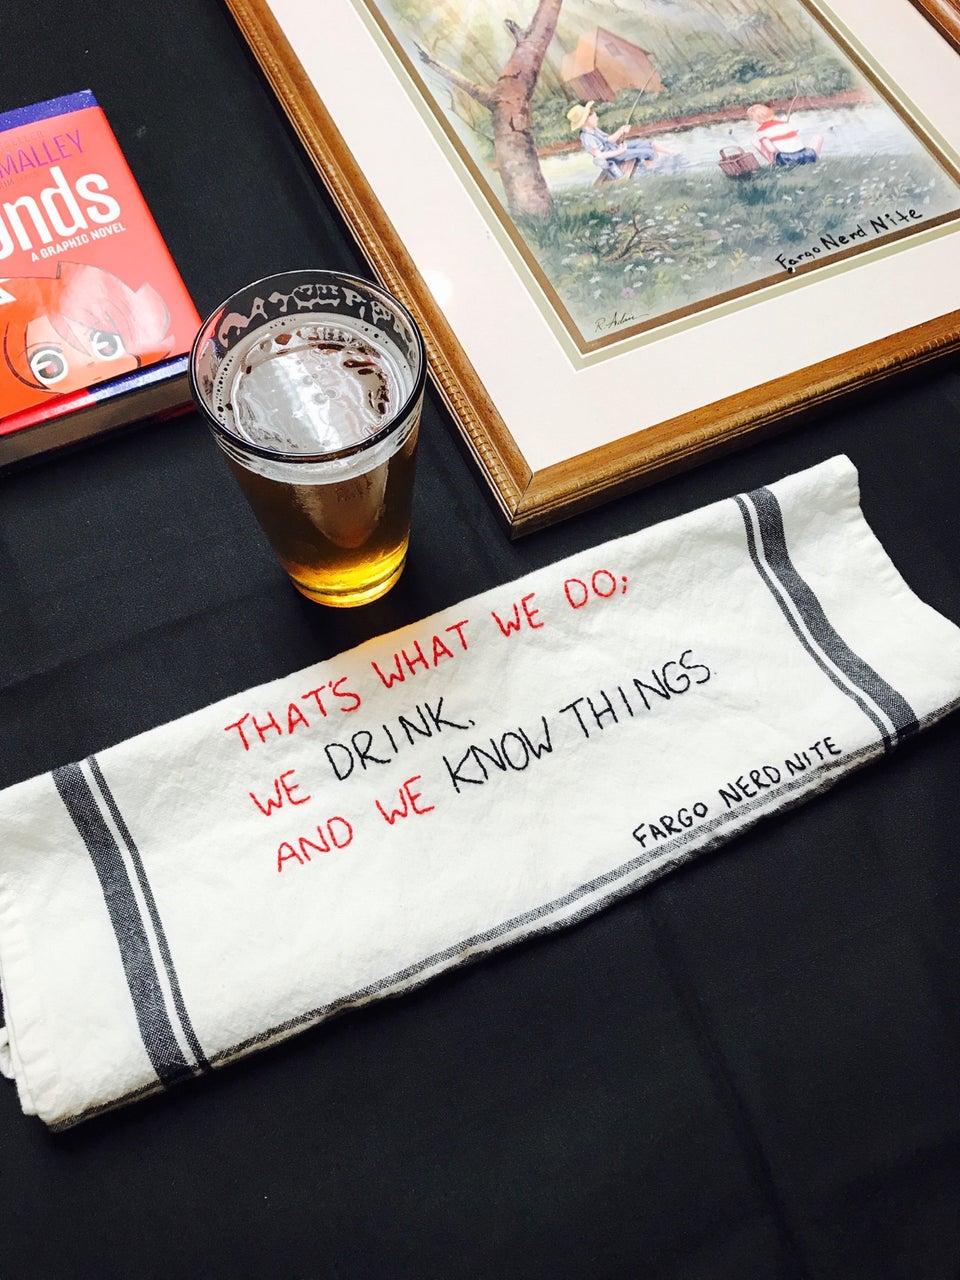 MALLEY
A GRAPHIC NOVEL
Fargo Nerd Nite
THAT'S WHAT WE DO;
WE DRINK,
AND WE KNOW THINGS.
FARGO NERD NITE